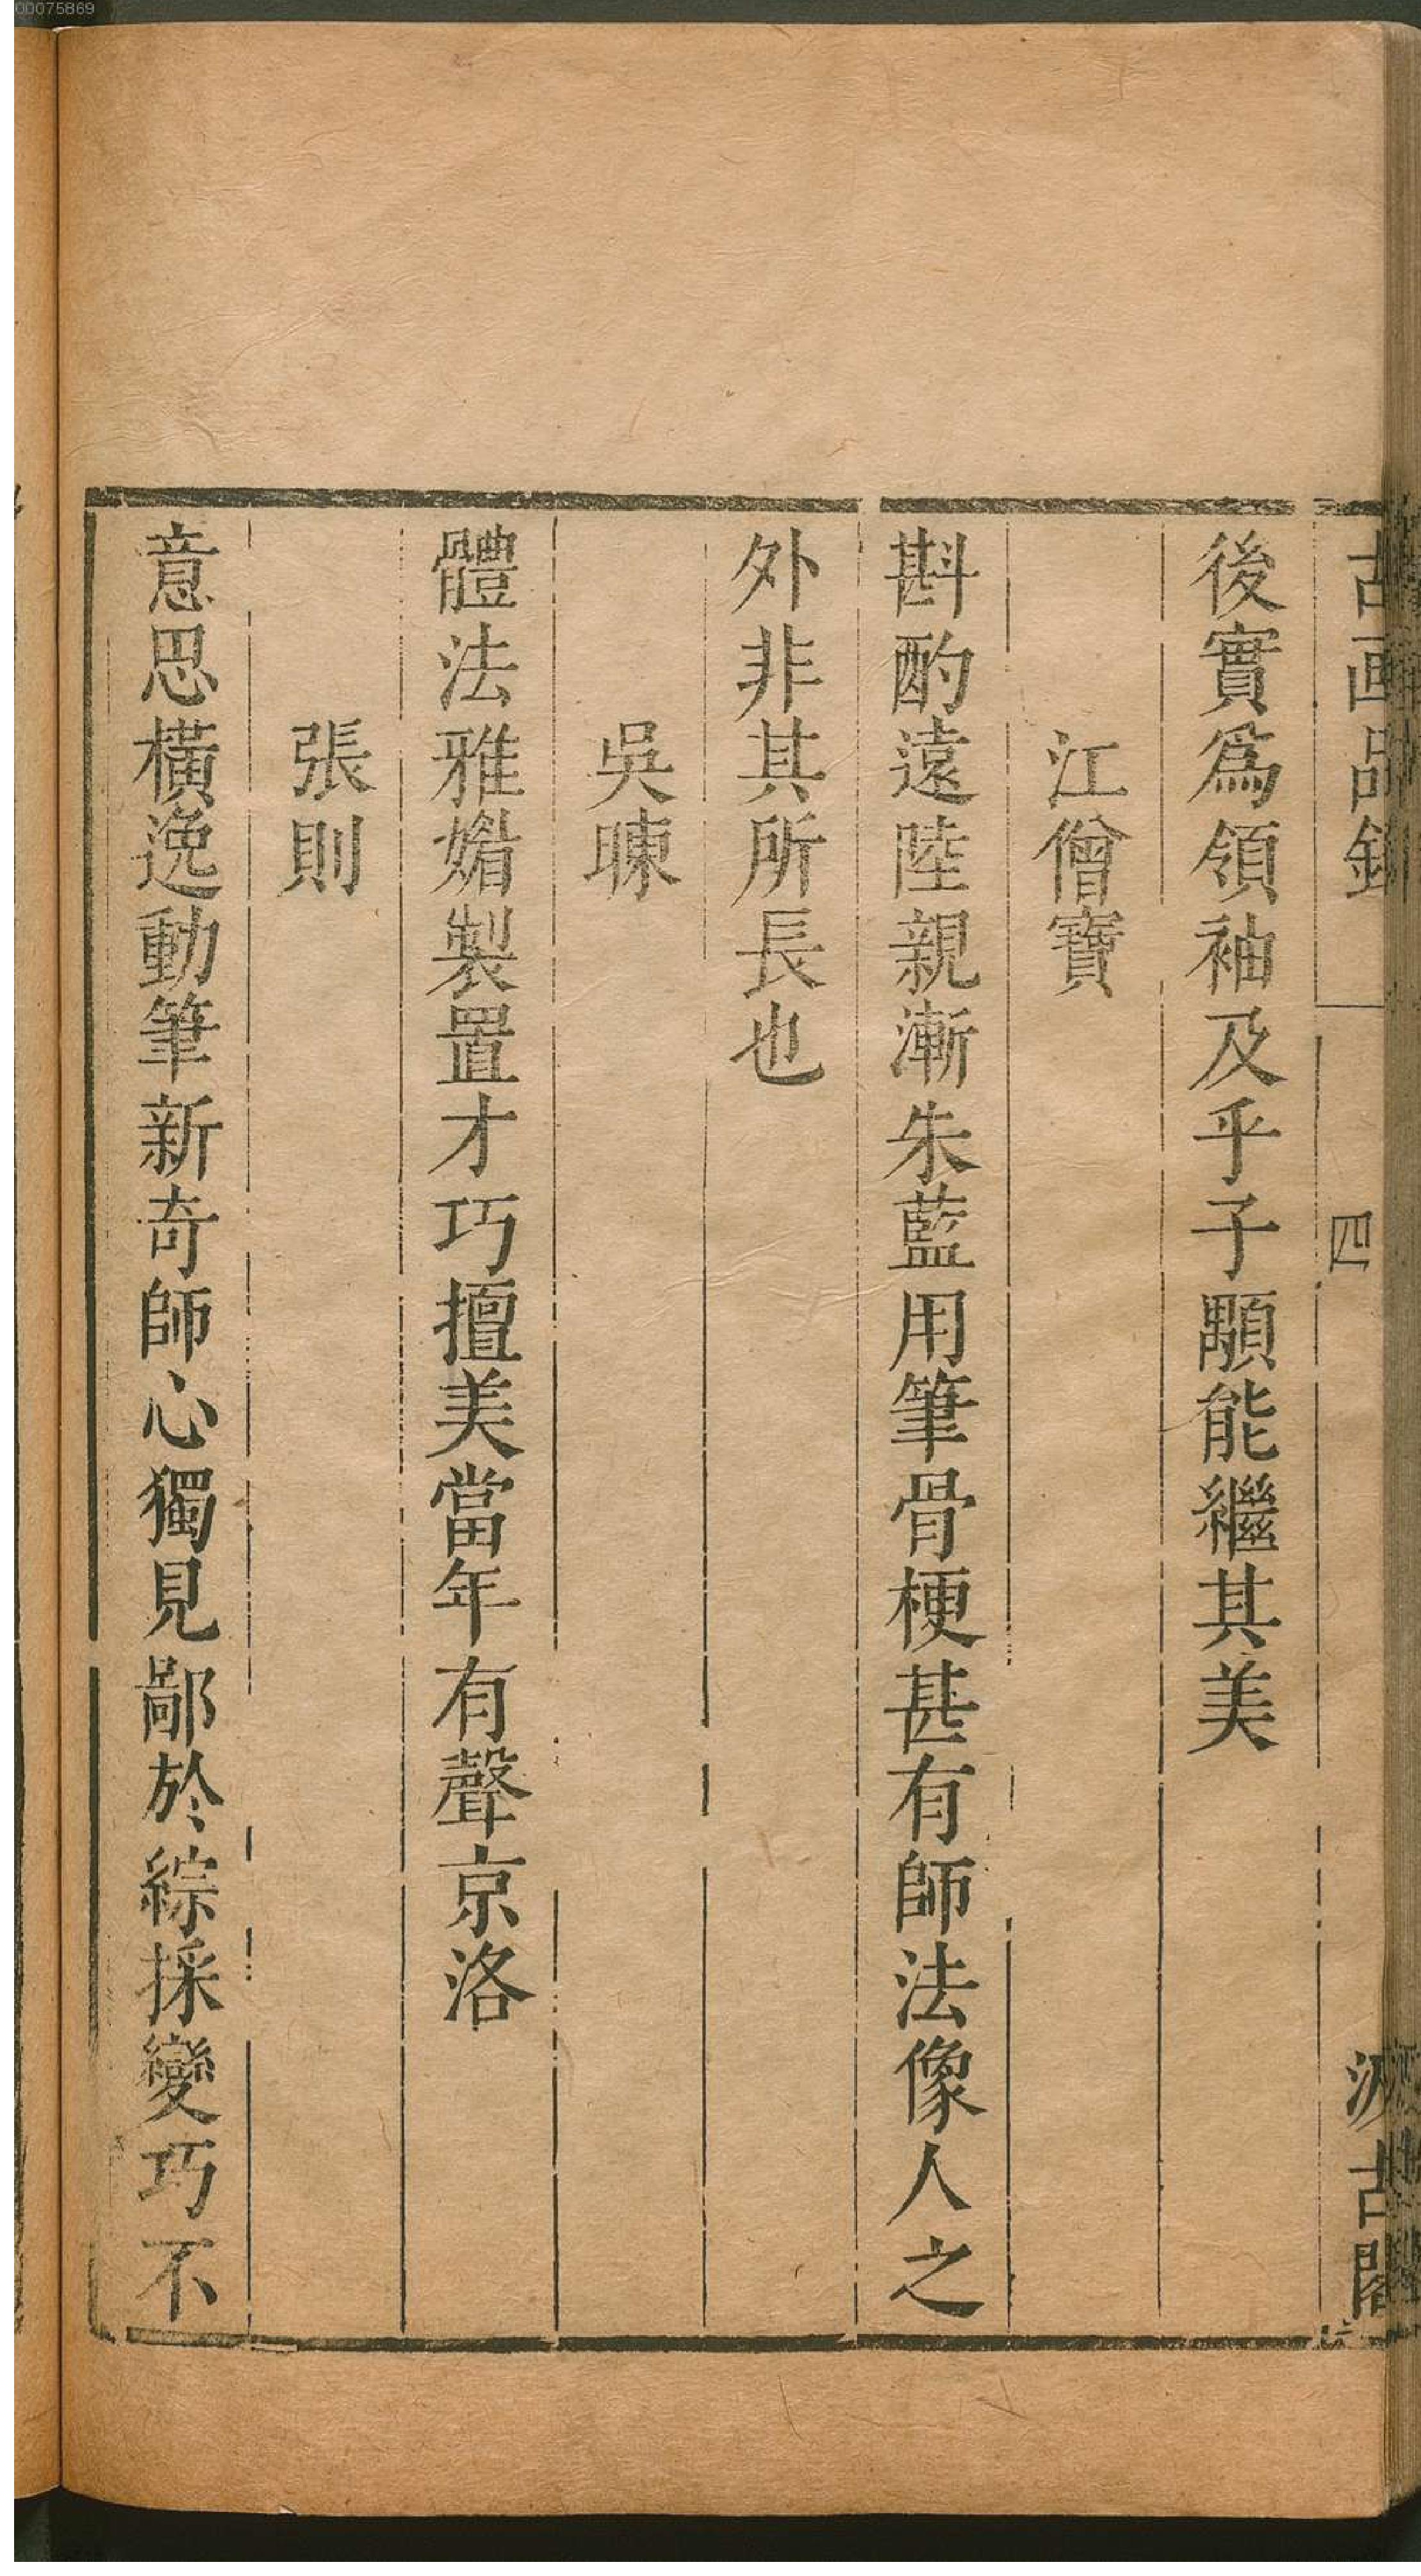 00075869
古画品錄
四
汲古閣
後實爲領袖及乎子顒能繼其美
江僧寶
斟酌遠陸親漸朱藍用筆骨梗甚有師法像人之
外非其所長也
吳暕
體法雅媚製置才巧擅美當年有聲京洛
張則
意思橫逸動筆新奇師心獨見鄙於綜採變巧不